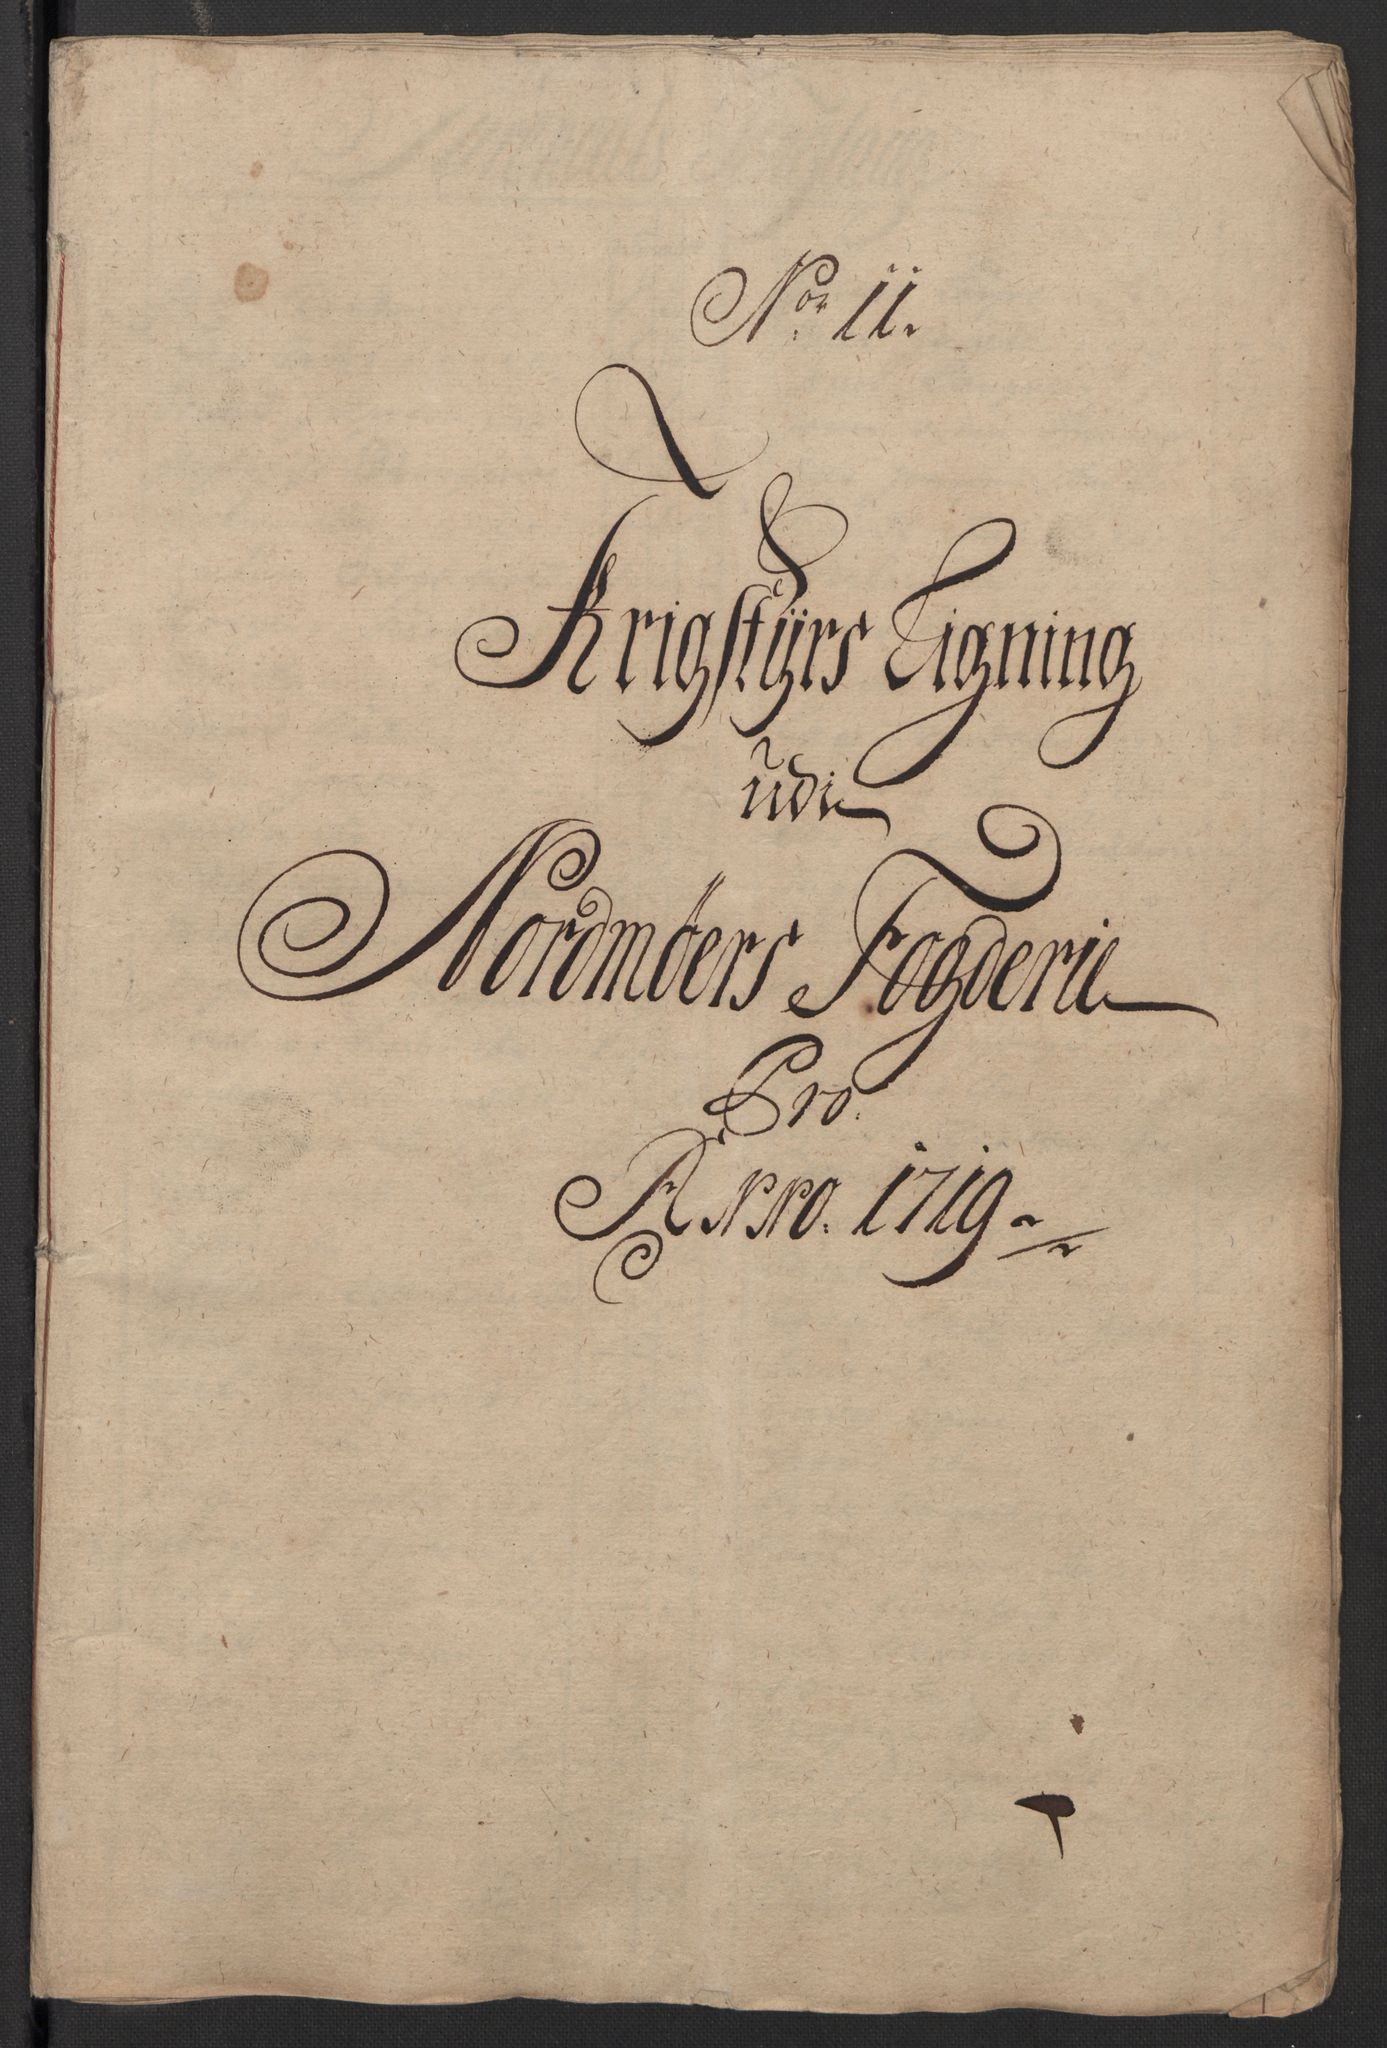 No: 11.
Krigstÿrs Ligning
udi
Nordmöers Fogderie
Pro.
Anno. 1719